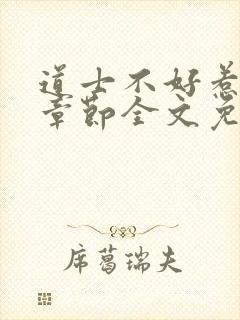 道士不好惹
章节全文免
席葛瑞夫